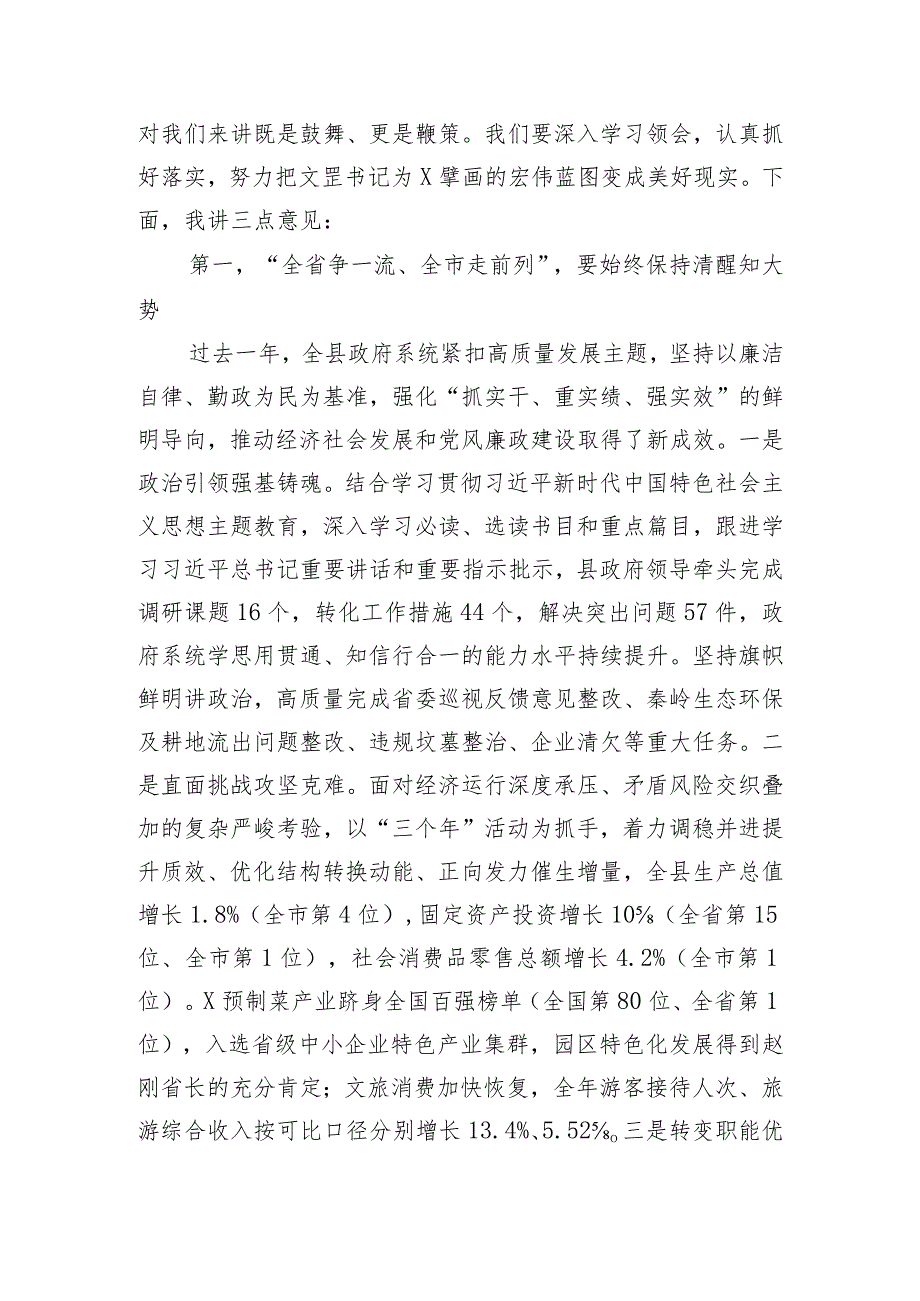 对我们来讲既是鼓舞、更是鞭策。我们要深入学习领会，认真抓
好落实，努力把文罡书记为 X 擘画的宏伟蓝图变成美好现实。下
面，我讲三点意见：
第一，“全省争一流、全市走前列”，要始终保持清醒知大
势
过去一年，全县政府系统紧扣高质量发展主题，坚持以廉洁
自律、勤政为民为基准，强化“抓实干、重实绩、强实效”的鲜
明导向，推动经济社会发展和党风廉政建设取得了新成效。一是
政治引领强基铸魂。结合学习贯彻习近平新时代中国特色社会主
义思想主题教育，深入学习必读、选读书目和重点篇目，跟进学
习习近平总书记重要讲话和重要指示批示，县政府领导牵头完成
调研课题 16 个，转化工作措施 44 个，解决突出问题 57 件，政
府系统学思用贯通、知信行合一的能力水平持续提升。坚持旗帜
鲜明讲政治，高质量完成省委巡视反馈意见整改、秦岭生态环保
及耕地流出问题整改、违规坟墓整治、企业清欠等重大任务。二
是直面挑战攻坚克难。面对经济运行深度承压、矛盾风险交织叠
加的复杂严峻考验，以“三个年”活动为抓手，着力调稳并进提
升质效、优化结构转换动能、正向发力催生增量，全县生产总值
增长 1.8%（全市第 4 位）,固定资产投资增长 10⅝（全省第 15
位、全市第 1 位），社会消费品零售总额增长 4.2%（全市第 1
位）。X 预制菜产业跻身全国百强榜单（全国第 80 位、全省第 1
位），入选省级中小企业特色产业集群，园区特色化发展得到赵
刚省长的充分肯定；文旅消费加快恢复，全年游客接待人次、旅
游综合收入按可比口径分别增长 13.4%、5.52⅝。三是转变职能优